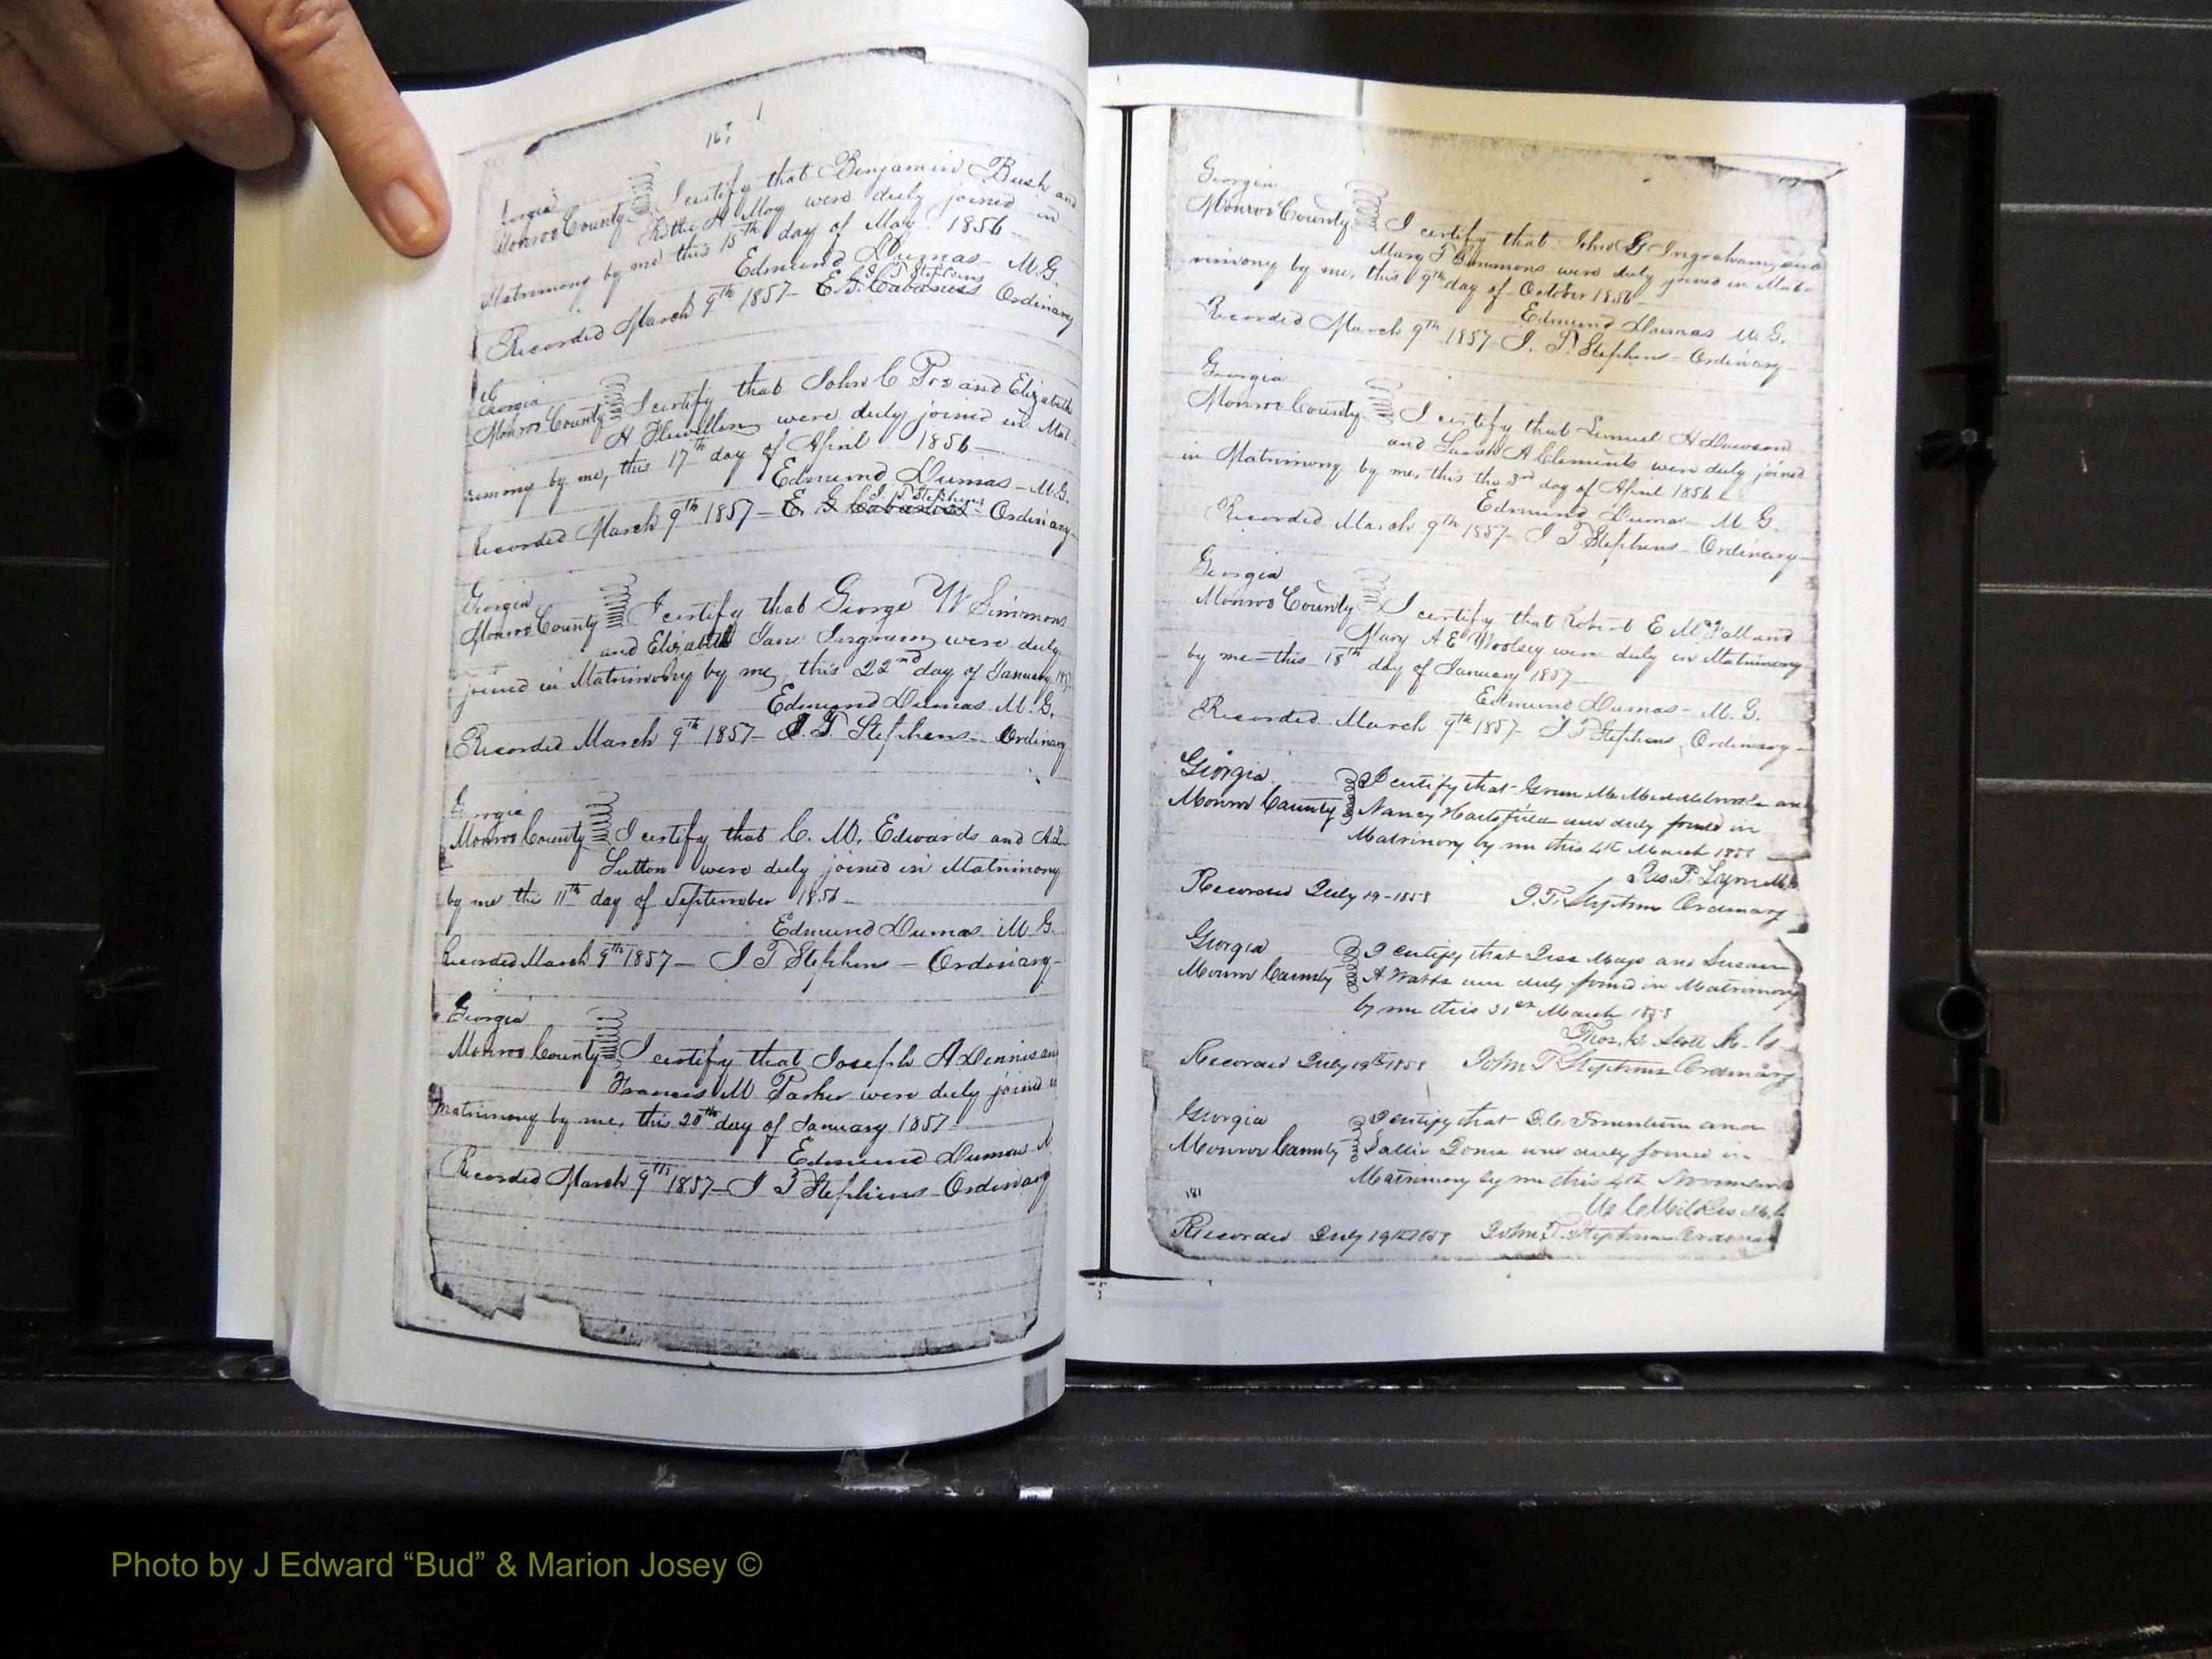 167
Georgia
Monroe County I certify that Benjamin Bush and
H May were duly joined in
Matrimony by me this 15th day of May 1856
Edmund Dumas M.G.
J T Stephens
Recorded March 9th 1857 - E G Cabaniss Ordinary
Georgia
Monroe County I certify that John C Poe and Elizabeth
H Flewellin were duly joined in Mat-
rimony by me, this 17th day of April 1856
Edmund Dumas - M.G.
J T Stephens
Recorded March 9th 1857 - E. G Cabaniss - Ordinary
Georgia
Monroe County I certify that George W Simmons
and Elizabeth Jane Ingram were duly
joined in Matrimony by me, this 22nd day of January 1857
Edmund Dumas M.G.
Recorded March 9th 1857 - J. T. Stephens - Ordinary
Georgia
Monroe County I certify that C. M. Edwards and
Sutton were duly joined in Matrimony
by me the 11th day of September 1856
Edmund Dumas M G
Recorded March 9th 1857 - J T Stephens - Ordinary
Georgia
Monroe County I certify that Joseph A Dennis and
Francis M Parker were duly joined in
matrimony by me, this 20th day of January 1857
Edmund Dumas M
Recorded March 9th 1857 - J T Stephens - Ordinary
Georgia
Monroe County I certify that John G Ingraham and
Mary F Simmons were duly joined in Mat-
rimony by me, this 9th day of October 1856
Edmund Dumas M.G.
Recorded March 9th 1857 - J. T. Stephens - Ordinary
Georgia
Monroe County I certify that Lemuel H Dawson
and Sarah A Clements were duly joined
in Matrimony by me, this the 3rd day of April 1856
Edmund Dumas - M G.
Recorded March 9th 1857 - J T Stephens - Ordinary
Georgia
Monroe County I certify that Robert E
Mary A E Woolsey were duly in Matrimony
by me - this 18th day of January 1857
Edmund Dumas - M.G.
Recorded March 9th 1857 - J T Stephens Ordinary
Georgia I certify that Green M and
Monroe County Nancy Hartsfield were duly joined in
Matrimony by me this 4th March
Recorded July 19 - 1858 J. T. Stephens Ordinary
Georgia I certify that Mays and Susan
Monroe County A Watts were duly joined in Matrimony
by me this 31st March
Thos. Scott M. G.
Recorded July 19th 1858 John T Stephens Ordinary
Georgia I certify that and
Monroe County Sallie were duly joined in
Matrimony by me this 4th November
181
Recorded July 19th 1858 John T. Stephens Ordinary
Photo by J Edward “Bud” & Marion Josey ©